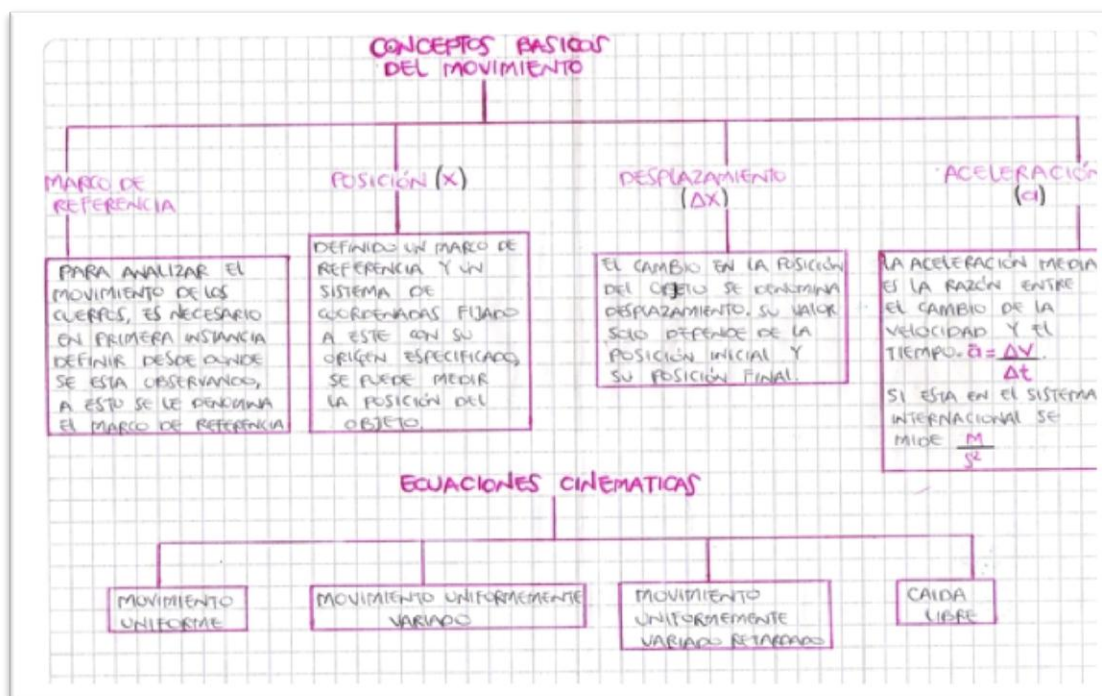 CONCEPTOS BASICOS
DEL MOVIMIENTO
MARCO DE
REFERENCIA
PARA ANALIZAR EL
MOVIMIENTO DE LOS
CUERPOS, ES NECESARIO
EN PRIMERA INSTANCIA
DEFINIR DESDE DONDE
SE ESTA OBSERVANDO,
A ESTO SE LE DENOMINA
EL MARCO DE REFERENCIA
POSICIÓN (X)
DEFINIDO UN MARCO DE
REFERENCIA Y UN
SISTEMA DE
COORDENADAS FIJADO
A ESTE CON SU
ORIGEN ESPECIFICADO,
SE PUEDE MEDIR
LA POSICIÓN DEL
OBJETO.
DESPLAZAMIENTO
(ΔX)
EL CAMBIO EN LA POSICIÓN
DEL OBJETO SE DENOMINA
DESPLAZAMIENTO. SU VALOR
SOLO DEPENDE DE LA
POSICIÓN INICIAL Y
SU POSICIÓN FINAL.
ACELERACIÓN
(a)
LA ACELERACIÓN MEDIA
ES LA RAZÓN ENTRE
EL CAMBIO DE LA
VELOCIDAD Y EL
TIEMPO. ā = ΔV
Δt
SI ESTA EN EL SISTEMA
INTERNACIONAL SE
MIDE M
S²
ECUACIONES CINEMATICAS
MOVIMIENTO
UNIFORME
MOVIMIENTO UNIFORMEMENTE
VARIADO
MOVIMIENTO
UNIFORMEMENTE
VARIADO RETARDADO
CAIDA
LIBRE